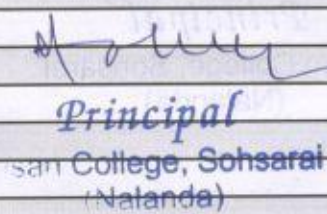 Principal
san College, Sohsarai
(Nalanda)